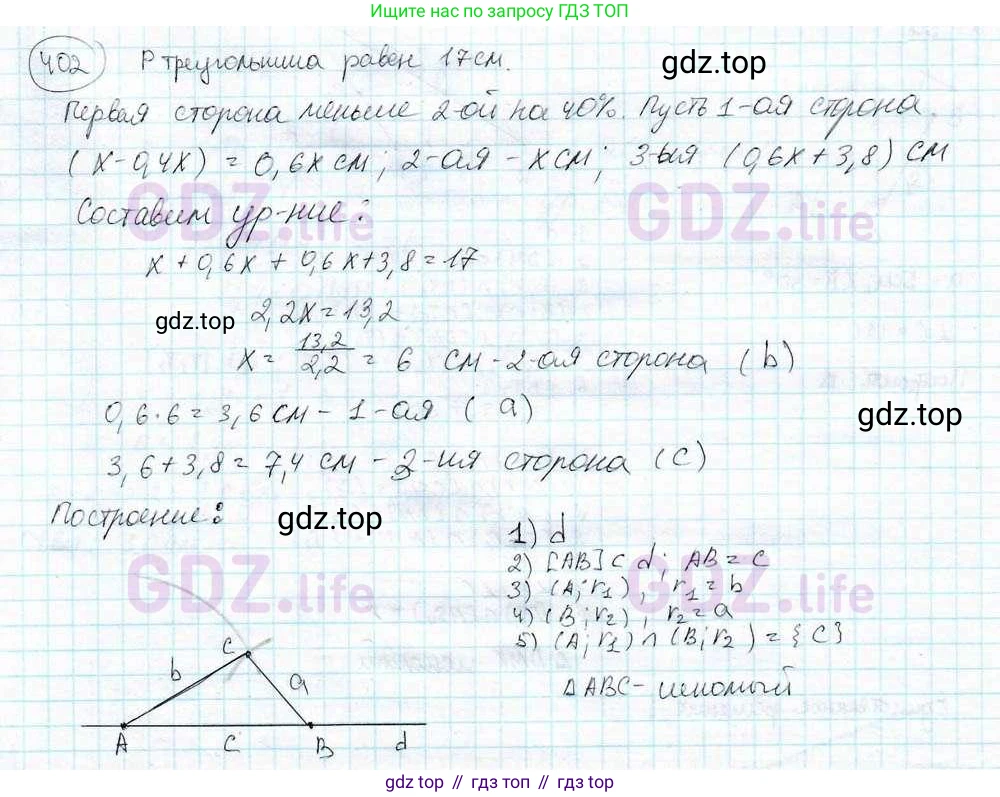 Ищите по запросу ГДЗ ТОП
402 P треугольника равен 17 см.
gdz.top
Первая сторона меньше 2-ой на 40%. Пусть 1-ая сторона
(x-0,4x) = 0,6x см; 2-ая - x см; 3-ья (0,6x+3,8) см
GDZ.life GDZ.life
Составим ур-ние:
x + 0,6x + 0,6x+3,8 = 17
gdz.top 2,2x = 13,2
x = 13,2/2,2 = 6 см - 2-ая сторона (b)
0,6·6 = 3,6 см - 1-ая (a)
gdz.top
3,6+3,8 = 7,4 см - 3-ия сторона (c)
Построение:
gdz.top
1) d
2) [AB] c d; AB = c
3) (A; r1), r1 = b
GDZ.life GDZ.life
4) (B; r2), r2 = a
5) (A; r1) ∩ (B; r2) = {C}
ΔABC - искомый
C
b a
A C B d
gdz top // гдз топ // gdz top